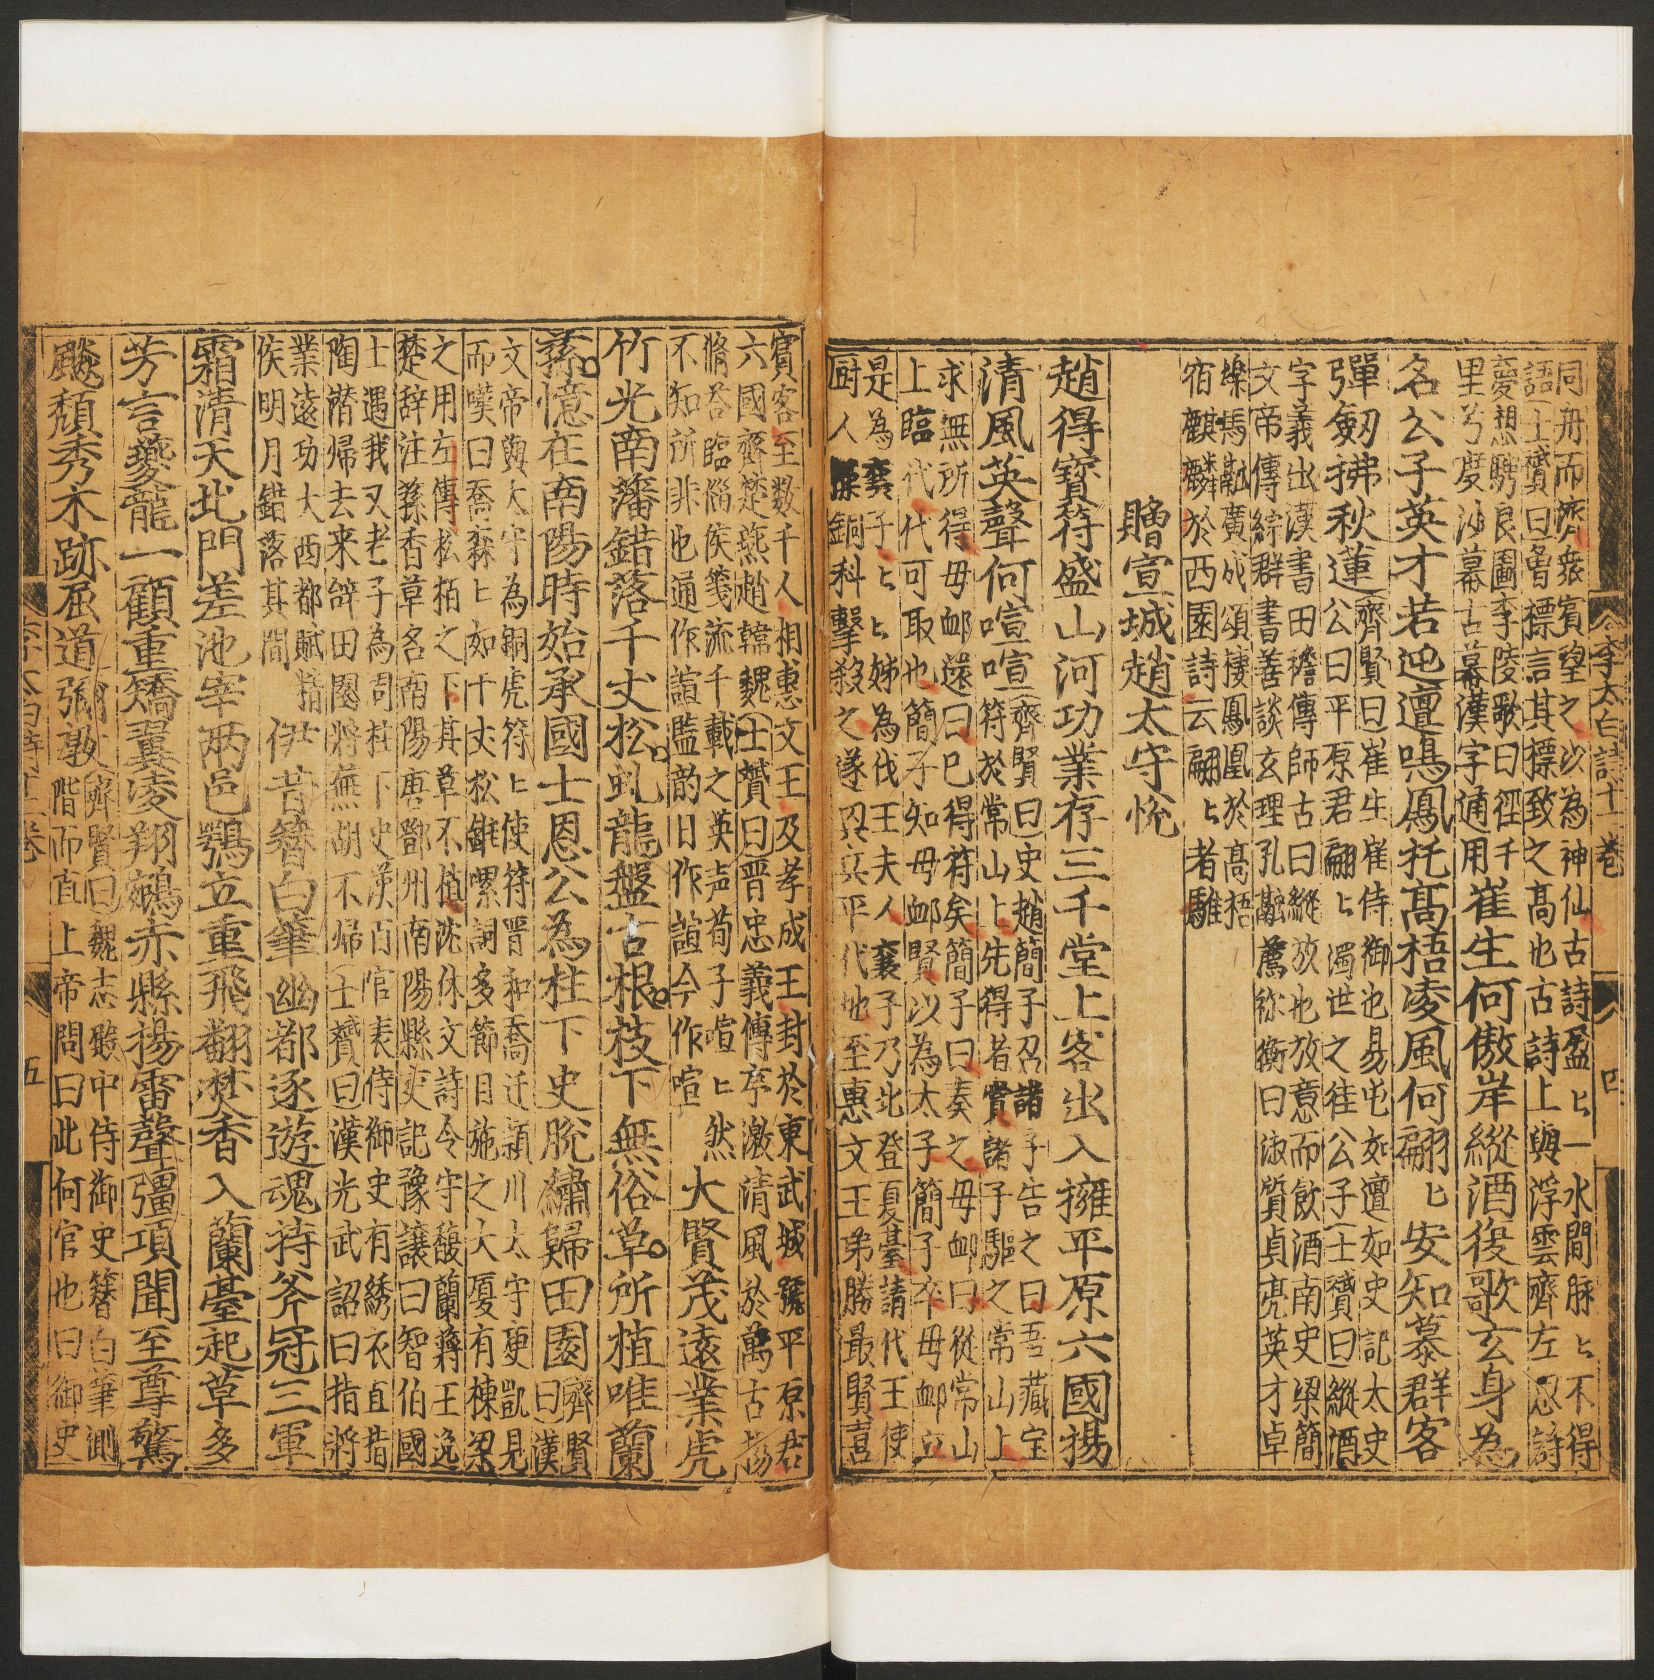 同舟而濟衆賓望之以為神仙古詩盈匕一水間脉匕不得
語士贇曰魯標言其標致之高也古詩上與浮雲齊左思詩
憂想騁良圖李陵歌曰徑千
里兮度沙幕古幕漢字通用崔生何傲岸縱酒後歌玄身為
名公子英才若迍邅鳴鳳托高梧凌風何翩匕安知慕群客
彈劒拂秋蓮齊賢曰崔生崔侍御也易屯如邅如史記太史
公曰平原君翩匕濁世之佳公子士贇曰縱酒
字義出漢書田儋傳師古曰縱放也放意而飲酒南史梁簡
文帝傳綜群書善談玄理孔融薦祢衡曰淑質貞亮英才卓
櫟馬融廣成頌棲鳳凰於高梧
宿麒麟於西園詩云翩匕者騅
贈宣城趙太守恱
趙得寶符盛山河功業存三千堂上客出入擁平原六國揚
清風英聲何喧喧齊賢曰史趙簡子召諸子告之曰吾藏宝
符於常山上先得者賞諸子驅之常山上
求無所得毋卹還曰已得符矣簡子曰奏之毋卹曰從常山
上臨代代可取也簡子知毋卹賢以為太子簡子卒毋卹立
是為襄子匕匕姊為代王夫人襄子乃北登夏臺請代王使
厨人操銅科擊殺之遂興兵平代地至惠文王弟勝最賢喜
賓客至数千人相惠文王及孝成王封於東武城號平原君
六國齊楚燕趙韓魏士贇曰晋忠義傳亭激清風於萬古揚
脩荅臨淄侯箋流千載之英声荀子喧匕然
不知所非也通作諠監韵旧作諠今作喧大賢茂遠業虎
竹光南藩錯落千丈松虬龍盤古根枝下無俗草所植唯蘭
蓀憶在南陽時始承國士恩公為柱下史脫繡歸田園齊賢
曰漢
文帝與太守為銅虎符匕使符晋和喬迁潁川太守庾凱見
而嘆曰喬森匕如千丈松雖㩡砢多節目施之大厦有棟梁
之用左傳松柏之下其草不植沈休文詩令守馥蘭蓀王逸
楚辞注蓀香草名南陽唐鄧州南陽縣史記豫讓曰智伯國
士遇我又老子為周柱下史漢百官表侍御史有綉衣直指
陶潜歸去来辝田園將蕪胡不歸士贇曰漢光武詔曰指將
業遠功大西都賦精
侯明月錯落其間伊昔簪白筆幽都逐遊魂持斧冠三軍
霜清天北門差池宰兩邑鶚立重飛翻焚香入蘭臺起草多
芳言夔龍一顧重矯翼凌翔鵷赤縣揚雷聲彊項聞至尊驚
飈頹秀木跡屈道彌敦齊賢曰魏志殿中侍御史簪白筆側
階而直上帝問曰此何官也曰御史
李太白詩十一卷 四
五